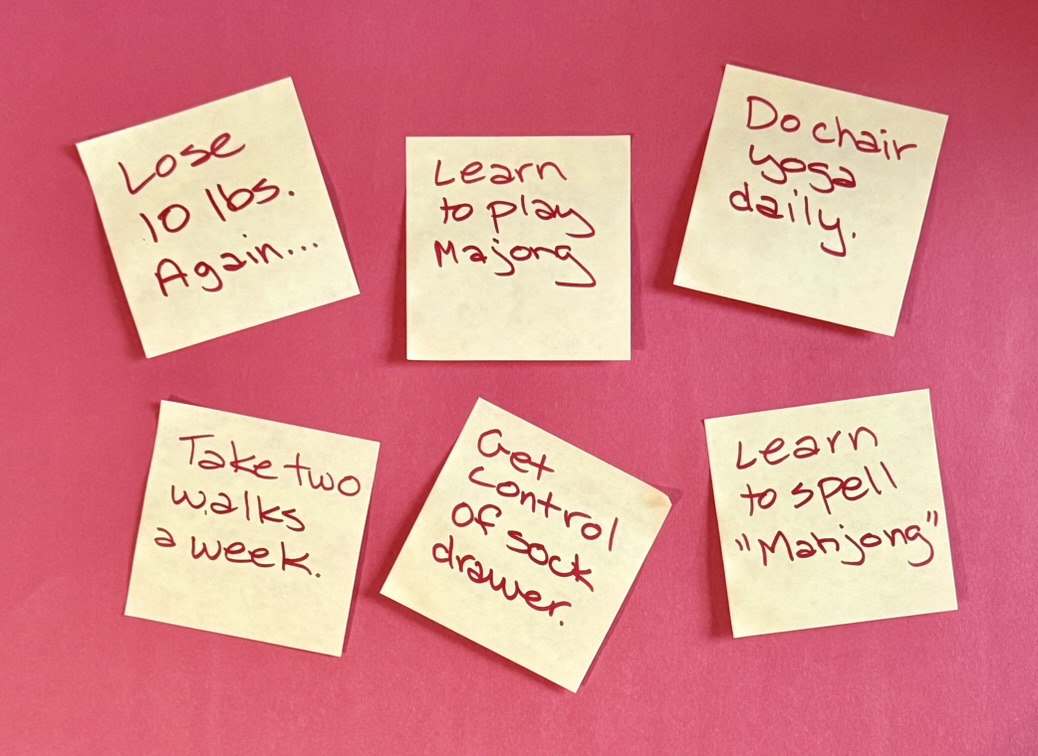 Lose
10 lbs.
Again...
Learn
to play
Majong
Do chair
yoga
daily.
Take two
walks
a week.
Get
control
of sock
drawer.
Learn
to spell
"Mahjong"